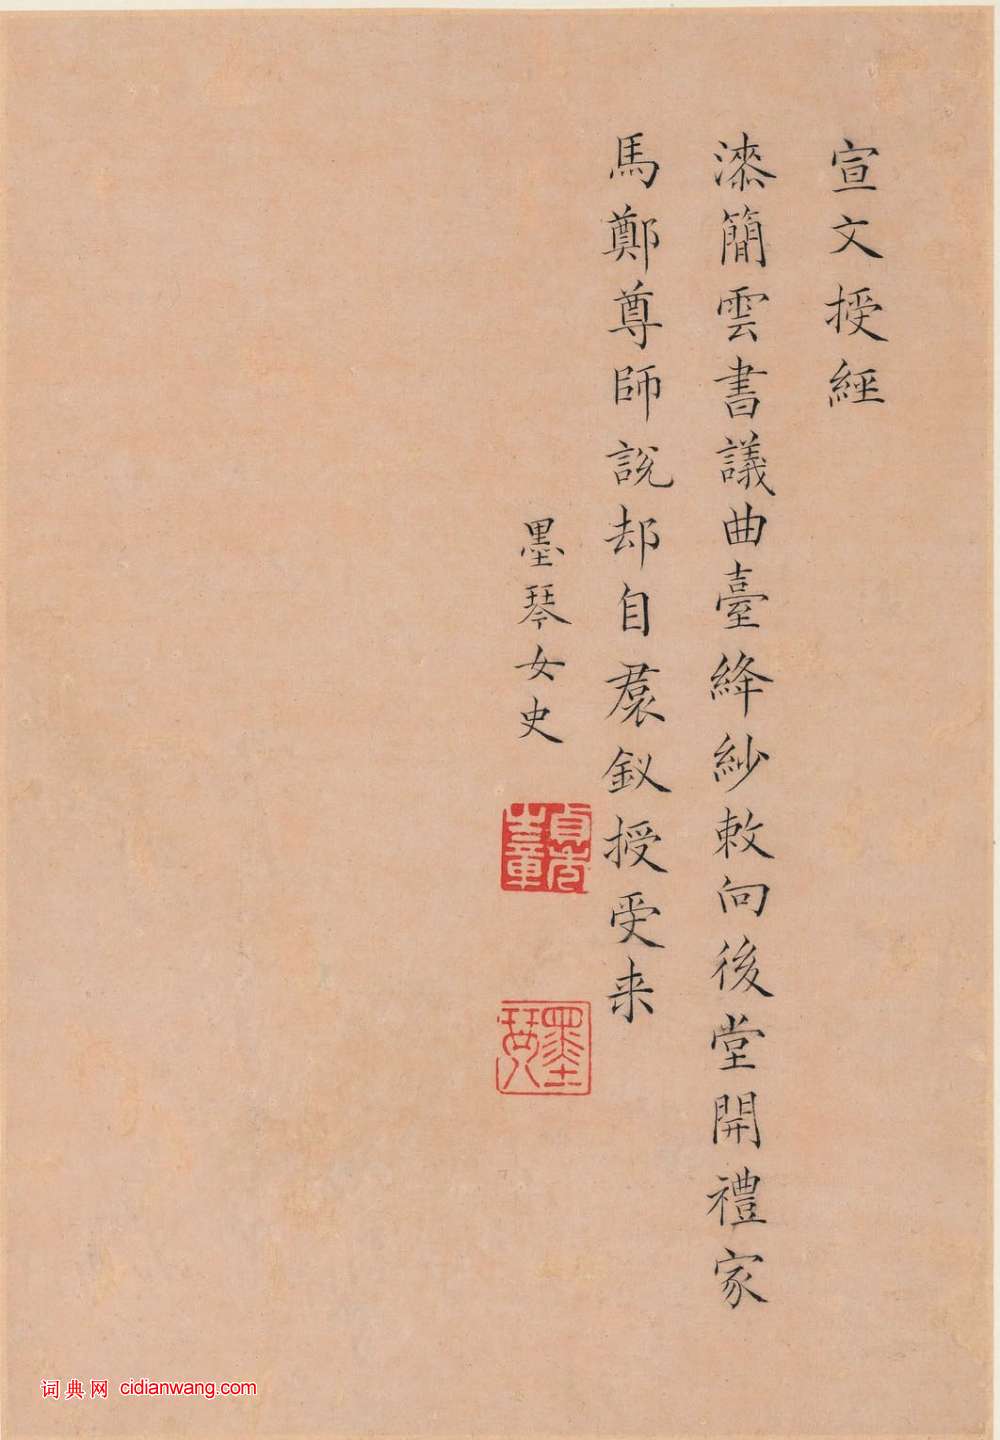 宣文授經
漆簡雲書議曲臺絳紗敕向後堂開禮家
馬鄭尊師說却自裠釵授受来
墨琴女史
貞秀之章
墨琴
词典网 cidianwang.com